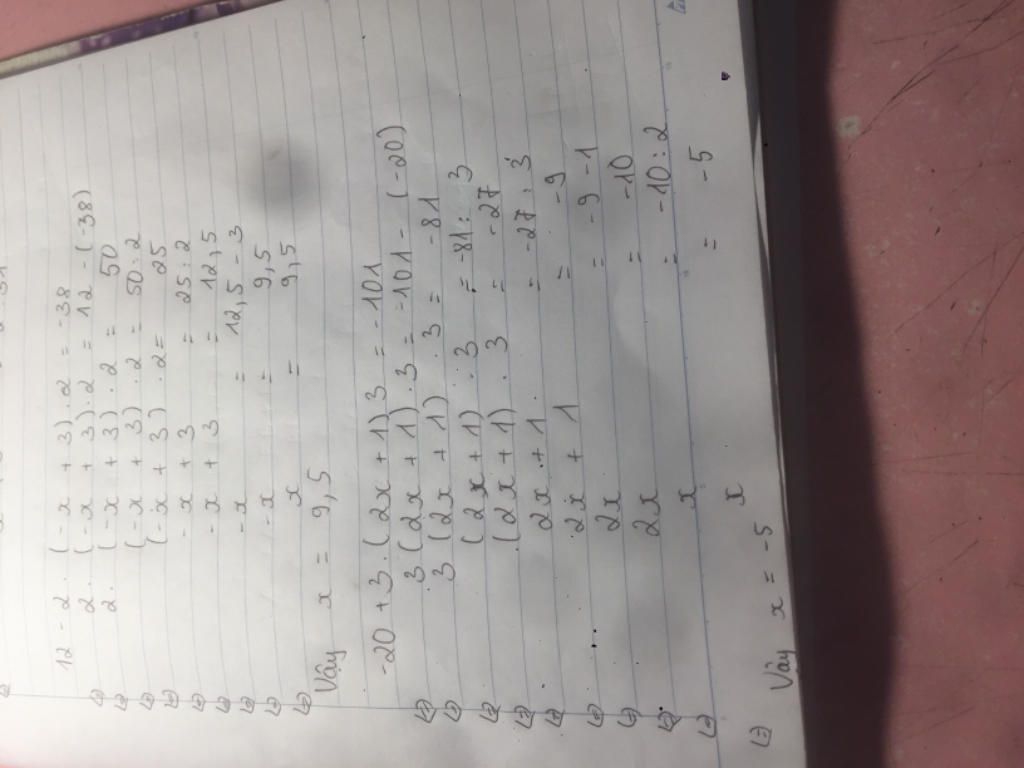 12 - 2. (-x + 3).2 = -38
⇔ 2. (-x + 3).2 = 12 - (-38)
⇔ 2. (-x + 3).2 = 50
⇔ (-x + 3).2 = 50:2
⇔ (-x + 3).2 = 25
⇔ -x + 3 = 25:2
⇔ -x + 3 = 12,5
⇔ -x = 12,5 - 3
⇔ -x = 9,5
⇔ x = 9,5
Vậy x = 9,5
-20 + 3.(2x + 1)3 = -101
⇔ 3(2x + 1).3 = -101 - (-20)
⇔ 3(2x + 1).3 = -81
⇔ (2x + 1).3 = -81:3
⇔ (2x + 1).3 = -27
⇔ 2x + 1 = -27:3
⇔ 2x + 1 = -9
⇔ 2x = -9 - 1
⇔ 2x = -10
⇔ x = -10:2
⇔ x = -5
Vậy x = -5